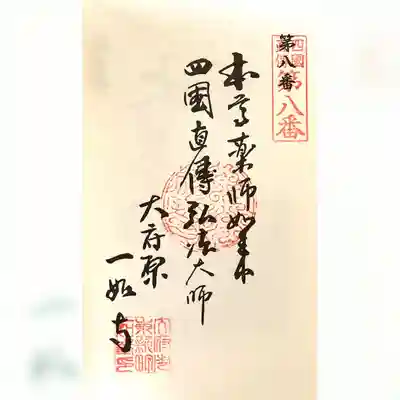 第八番
四國
第八番
本尊薬師如来
四國直傳弘法大師
大府原
一如寺